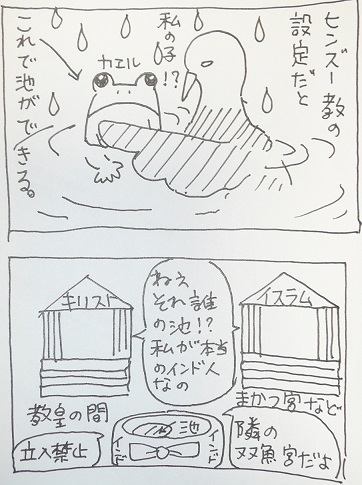 ヒンズー教の
設定だと
私の子!?
カエル
これで池ができる。
キリスト
イスラム
ねえ
それ誰
の池!?
私が本当
のインド人
なの
教皇の間
立入禁止
池
インド
インド
まかつ宮など
隣の
双魚宮だよ